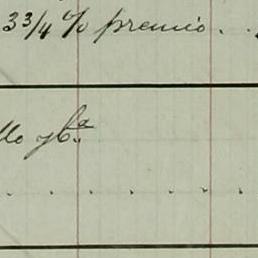 3 3/4 % premio.
llo y Ca